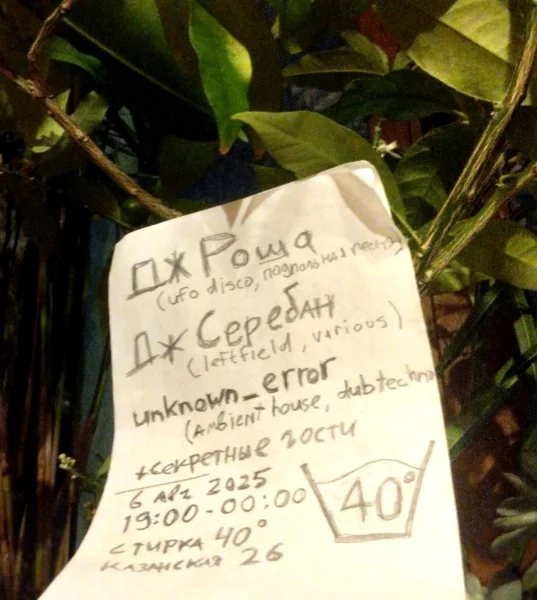 ДЖ Роща
(ufo disco, подпольная песня)
Дж Серебан
(leftfield, various)
unknown_error
(ambient house, dubtechno
+секретные гости
6 авг 2025
19:00-00:00
СТИРКА 40°
КАЗАНСКАЯ 26
40°